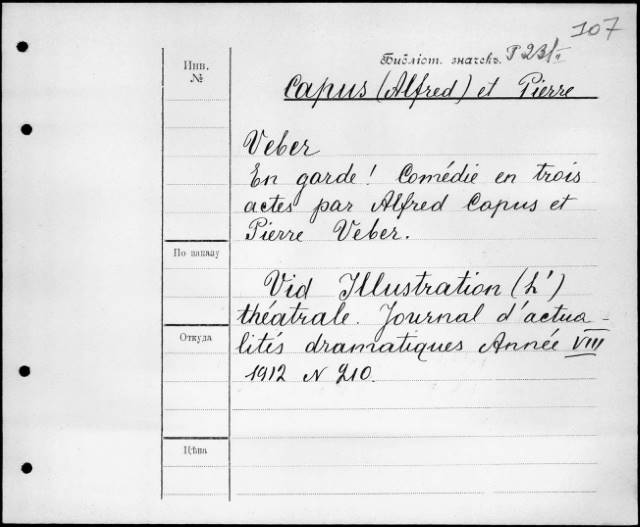 107
Библіот. значекъ.
Инв.
№
Capus (Alfred) et Pierre
Veber
En garde! Comédie en trois
actes par Alfred Capus et
Pierre Veber.
По каналу
Vid Illustration (L')
théatrale. Journal d'actua-
Откуда
lités dramatiques Année VIII
1912 N 210.
Цѣна